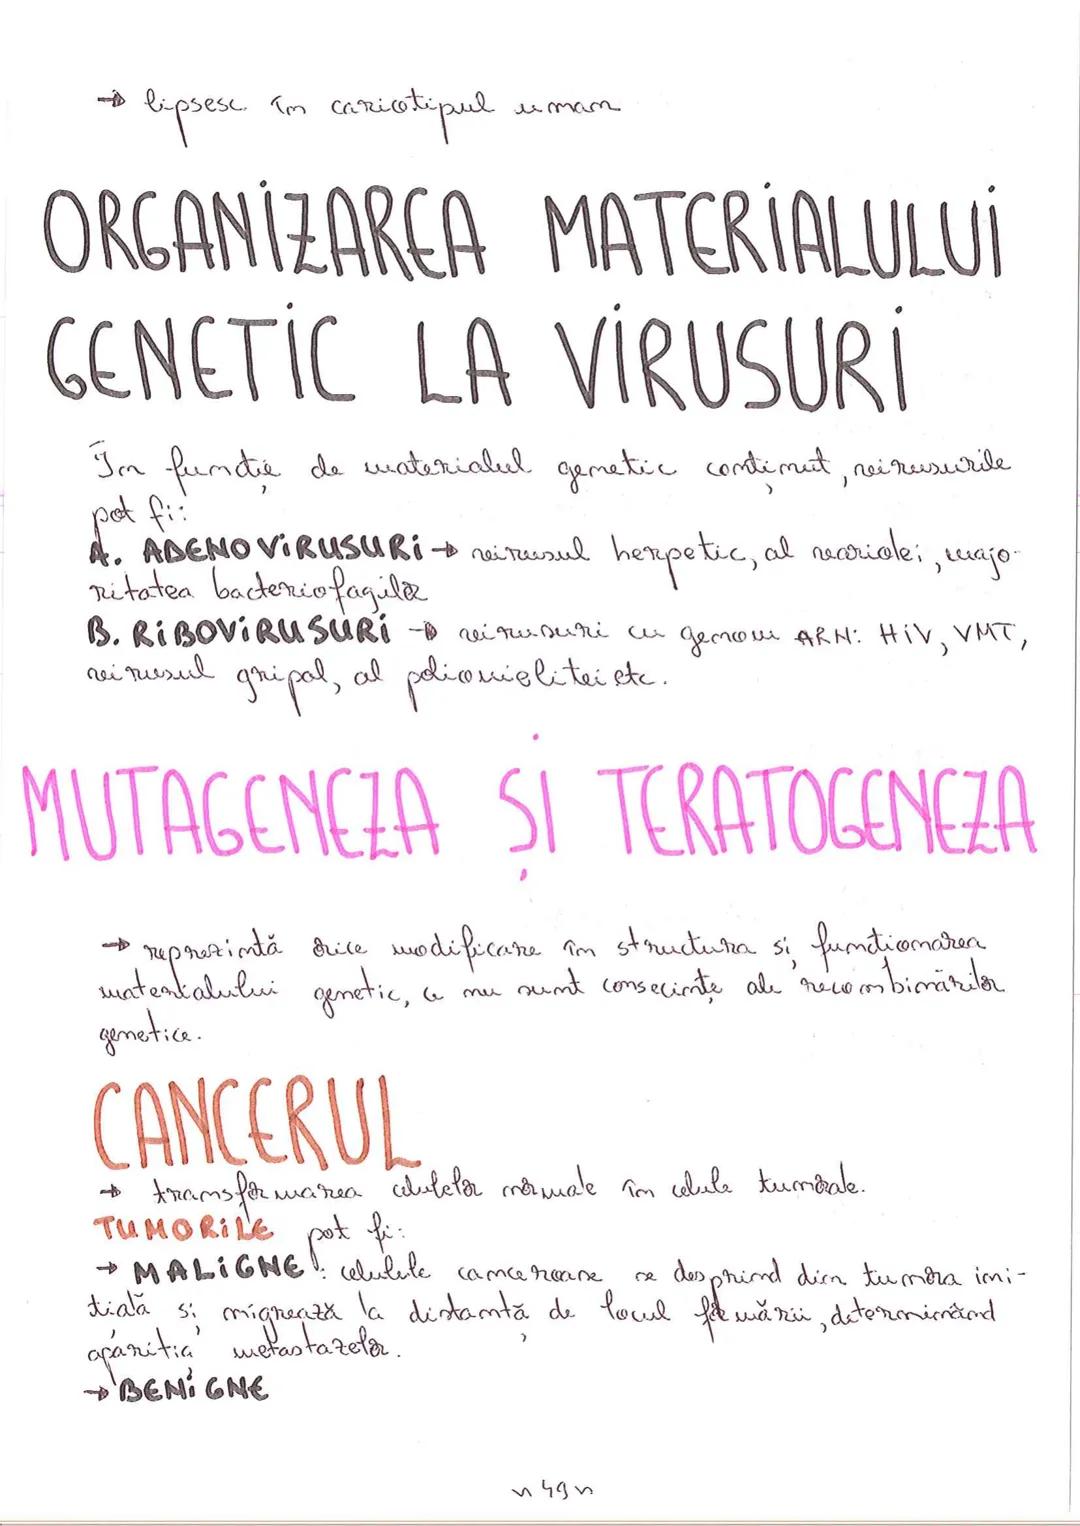 → lipsesc în cariotipul uman
ORGANIZAREA MATERIALULUI
GENETIC LA VIRUSURI
În funcție de materialul genetic conținut, virusurile
pot fi:
A. ADENOVIRUSURI → virusul herpetic, al variolei, majo-
ritatea bacteriofagilor
B. RIBOVIRUSURI → virusuri cu genom ARN: HIV, VMT,
virusul gripal, al poliomielitei etc.
MUTAGENEZA ȘI TERATOGENEZA
→ reprezintă orice modificare în structura și funcționarea
materialului genetic, ce nu sunt consecințe ale recombinărilor
genetice.
CANCERUL
→ transformarea celulelor normale în celule tumorale.
TUMORILE pot fi:
→ MALIGNE: celulele canceroase se desprind din tumora ini-
țială și migrează la distanță de locul formării, determinând
apariția metastazelor.
→ BENIGNE
~ 49 ~